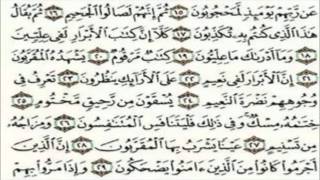 عَن رَّبِّهِمْ يَوْمَئِذٍ لَّمَحْجُوبُونَ ١٥ ثُمَّ إِنَّهُمْ لَصَالُوا۟ ٱلْجَحِيمِ ١٦ ثُمَّ يُقَالُ
هَٰذَا ٱلَّذِى كُنتُم بِهِۦ تُكَذِّبُونَ ١٧ كَلَّآ إِنَّ كِتَٰبَ ٱلْأَبْرَارِ لَفِى عِلِّيِّينَ
١٨ وَمَآ أَدْرَىٰكَ مَا عِلِّيُّونَ ١٩ كِتَٰبٌ مَّرْقُومٌ ٢٠ يَشْهَدُهُ ٱلْمُقَرَّبُونَ
٢١ إِنَّ ٱلْأَبْرَارَ لَفِى نَعِيمٍ ٢٢ عَلَى ٱلْأَرَآئِكِ يَنظُرُونَ ٢٣ تَعْرِفُ فِى
وُجُوهِهِمْ نَضْرَةَ ٱلنَّعِيمِ ٢٤ يُسْقَوْنَ مِن رَّحِيقٍ مَّخْتُومٍ ٢٥
خِتَٰمُهُۥ مِسْكٌ وَفِى ذَٰلِكَ فَلْيَتَنَافَسِ ٱلْمُتَنَٰفِسُونَ ٢٦ وَمِزَاجُهُۥ
مِن تَسْنِيمٍ ٢٧ عَيْنًا يَشْرَبُ بِهَا ٱلْمُقَرَّبُونَ ٢٨ إِنَّ ٱلَّذِينَ
أَجْرَمُوا۟ كَانُوا۟ مِنَ ٱلَّذِينَ ءَامَنُوا۟ يَضْحَكُونَ ٢٩ وَإِذَا مَرُّوا۟ بِهِمْ